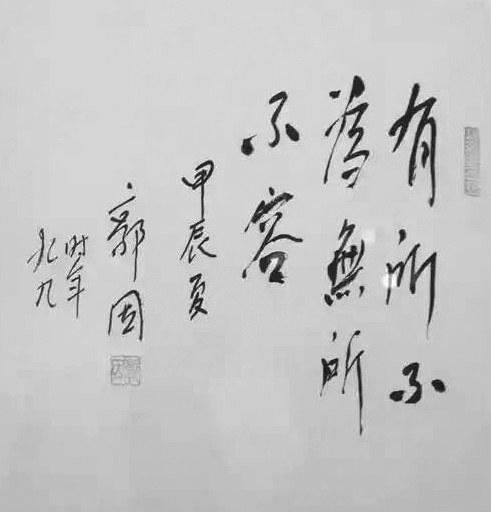 有所不
為無所
不容
甲辰夏
郭因
时年
九九